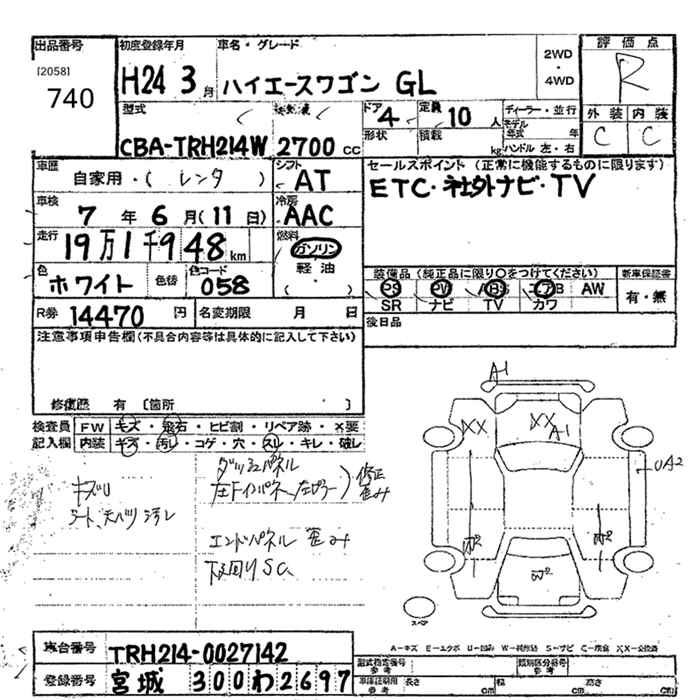 出品番号
[2058]
740
初度登録年月
H24 3月
車名・グレード
ハイエースワゴン GL
2WD
・
4WD
評価点
R
外装 内装
C C
型式
CBA-TRH214W
2700 cc
ドア 4
定員 10 人
形状
積載 kg
ディーラー・並行
モデル年式 年
ハンドル 左・右
車歴
自家用・( レンタ )
シフト
AT
車検
7 年 6 月(11 日)
冷房
AAC
走行
19万1千948 km
燃料
ガソリン
軽油
( ・ )
色
ホワイト
色替
色コード
058
R券 14470 円
名変期限 月 日
セールスポイント (正常に機能するものに限ります)
ETC・社外ナビ・TV
装備品 (純正品に限り○をつけてください)
新車保証書
PS PW ABS エアB AW
SR ナビ TV カワ
有・無
後日品
注意事項申告欄(不具合内容等は具体的に記入して下さい)
修復歴 有 〔箇所 〕
検査員記入欄
FW キズ・飛石・ヒビ割・リペア跡・X要
内装 キズ・汚レ・コゲ・穴・スレ・キレ・破レ
キズリ
シート、天バリ汚レ
ダッシュパネル
左Fインパネ、左ピラー) 修正 歪み
エンドパネル 歪み
下廻りSC
A1
XX
XX
A1
UA2
W2
W2
W2
スペア
A-キズ E-エクボ U-凹み W-補修跡 S-サビ C-腐食 XX-交換済
車台番号 TRH214-0027142
登録番号 宮城 300わ2697
型式指定番号 参考
類別区分番号 参考
車庫証明用 参考
長さ cm
幅 cm
高さ cm